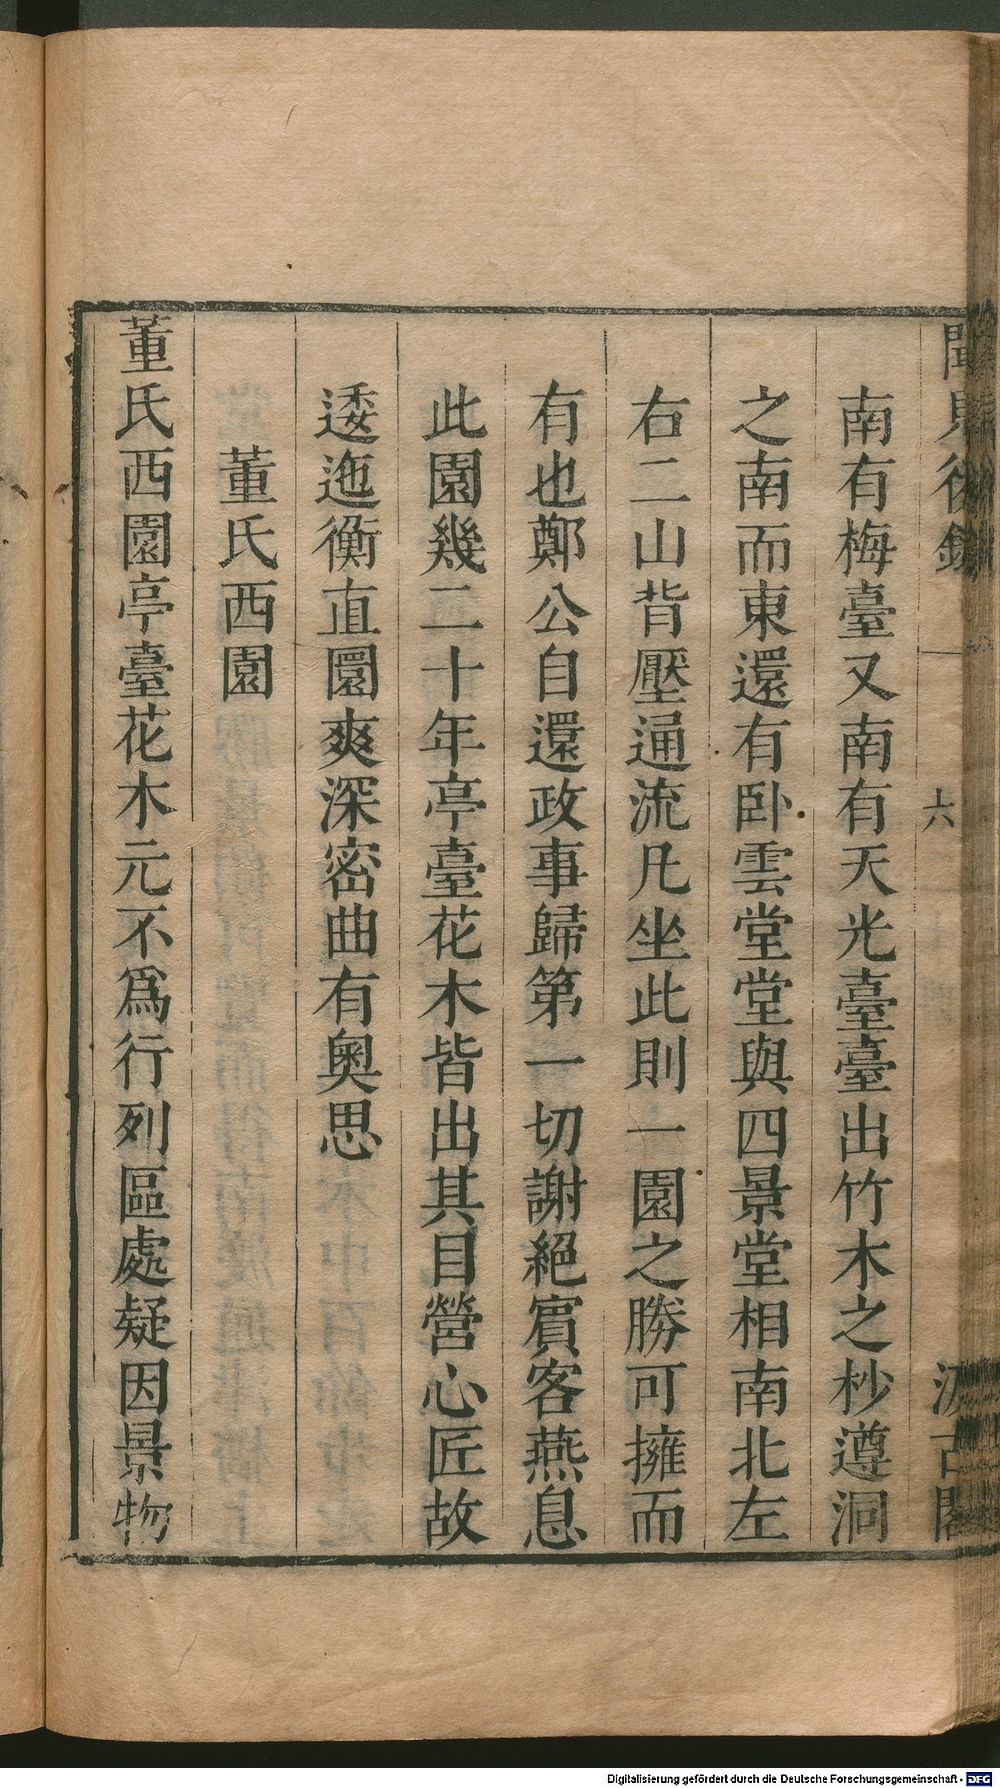 聞見後錄
六
汲古閣
南有梅臺又南有天光臺臺出竹木之杪遵洞
之南而東還有卧雲堂堂與四景堂相南北左
右二山背壓通流凡坐此則一園之勝可擁而
有也鄭公自還政事歸第一切謝絕賓客燕息
此園幾二十年亭臺花木皆出其目營心匠故
逶迤衡直闓爽深密曲有奧思
董氏西園
董氏西園亭臺花木元不爲行列區處疑因景物
Digitalisierung gefördert durch die Deutsche Forschungsgemeinschaft - DFG